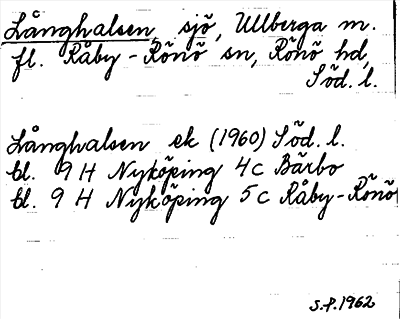 Långhalsen, sjö, Ullberga m.
fl. Råby-Rönö sn, Rönö hd,
Söd. l.
Långhalsen ek (1960) Söd. l.
bl. 9 H Nyköping 4c Bärbo
bl. 9 H Nyköping 5c Råby-Rönö
S.P. 1962